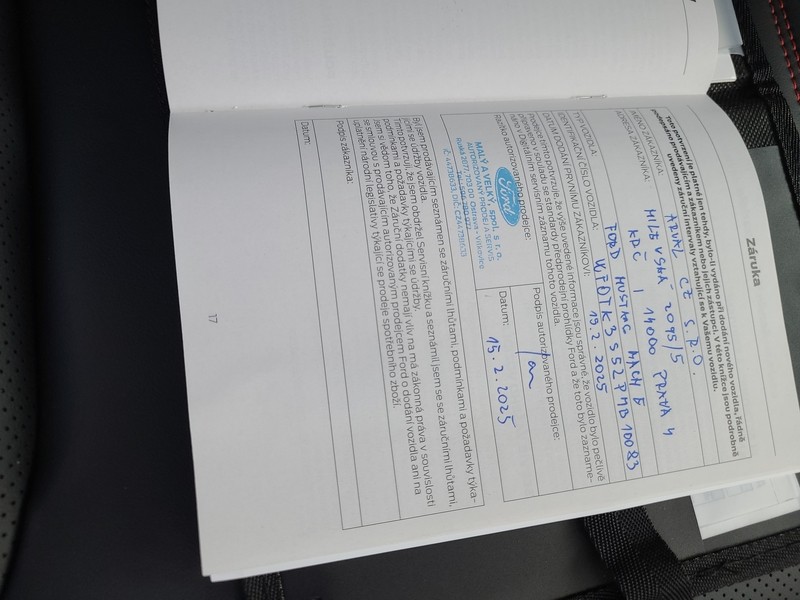 Záruka
Toto potvrzení je platné jen tehdy, bylo-li vydáno při dodání nového vozidla, řádně
podepsáno prodávajícím a zákazníkem nebo jejich zástupci. V této knížce jsou podrobně
uvedeny záruční intervaly vztahující se k Vašemu vozidlu.
JMÉNO ZÁKAZNÍKA: ARVAL CZ S.R.O.
ADRESA ZÁKAZNÍKA: MILEVSKÁ 2095/5
KRČ 14000 PRAHA 4
TYP VOZIDLA: FORD MUSTANG MACH E
IDENTIFIKAČNÍ ČÍSLO VOZIDLA: WF0TK3SS2PMB10083
DATUM DODÁNÍ PRVNÍMU ZÁKAZNÍKOVI: 19.2.2025
Prodejce tímto potvrzuje, že výše uvedené informace jsou správné, že vozidlo bylo pečlivě
připraveno v souladu se standardy předprodejní prohlídky Ford a že toto bylo zazname-
náno v Digitálním servisním záznamu tohoto vozidla.
Razítko autorizovaného prodejce:
Podpis autorizovaného prodejce:
Ford
MALÝ A VELKÝ, spol. s r. o.
AUTORIZOVANÝ PRODEJ A SERVIS
Ruská 2077, 703 00 Ostrava - Vítkovice
IČ: 44738633, DIČ: CZ44738633
Datum:
15.2.2025
Byl jsem prodávajícím seznámen se záručními lhůtami, podmínkami a požadavky týka-
jícími se údržby vozidla.
Tímto potvrzuji, že jsem obdržel Servisní knížku a seznámil jsem se se záručními lhůtami,
podmínkami a požadavky týkajícími se údržby.
Jsem si vědom toho, že Záruční dodatky nemají vliv na má zákonná práva v souvislosti
se smlouvou s prodávajícím autorizovaným prodejcem Ford o dodání vozidla ani na
uplatnění národní legislativy týkající se prodeje spotřebního zboží.
Podpis zákazníka:
Datum:
17